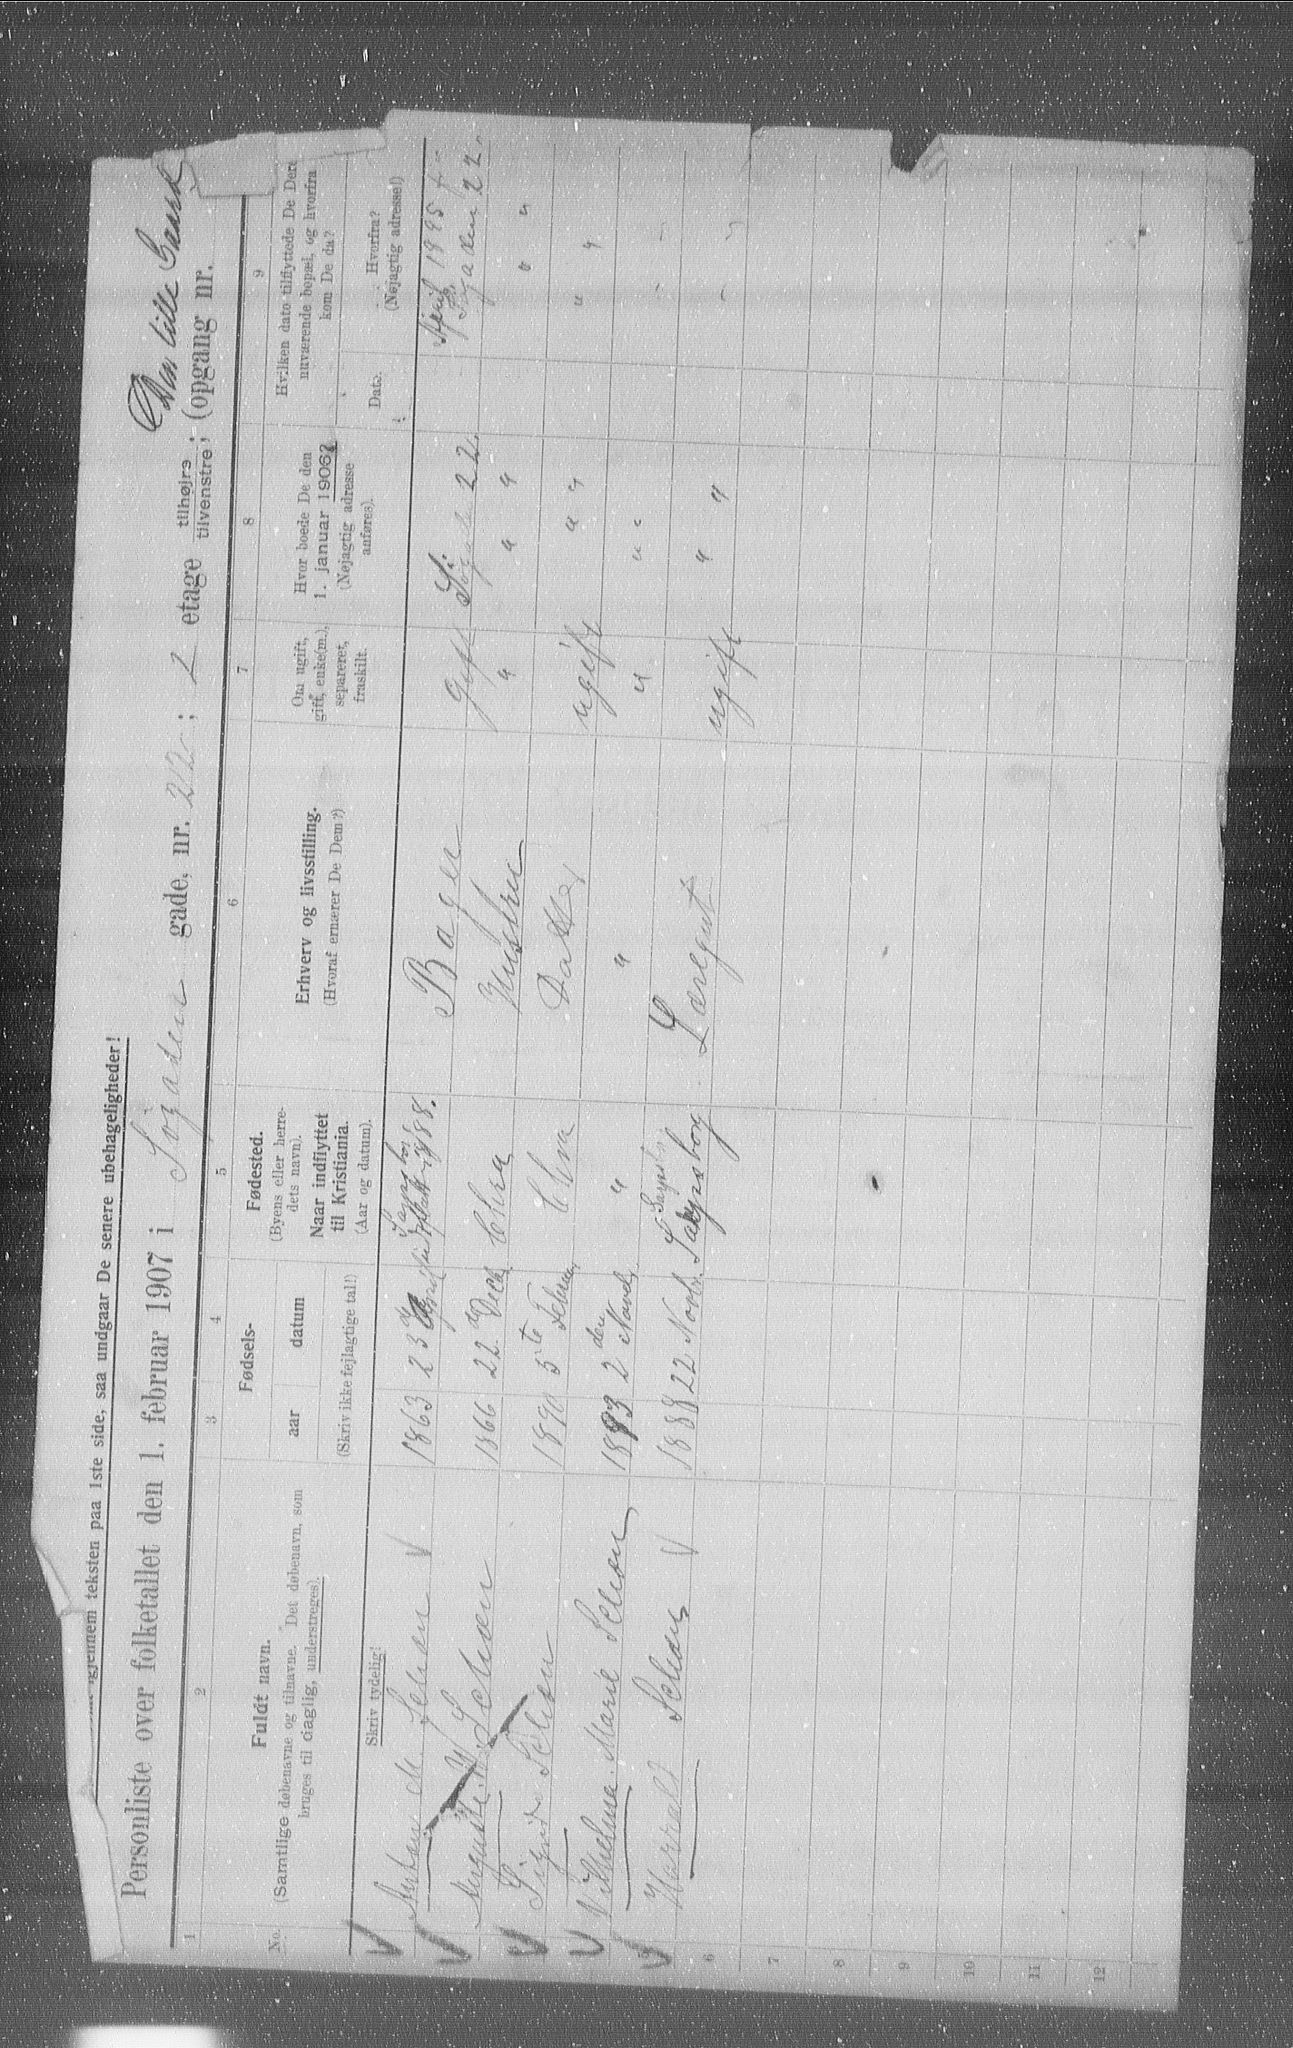 igjennem teksten paa 1ste side, saa undgaar De senere ubehageligheder!
Den lille Gaard
Personliste over folketallet den 1. februar 1907 i Søgaden gade, nr. 22; 2 etage tilhøjre / tilvenstre; (opgang nr.
1 2 3 4 5 6 7 8 9
No.
Fuldt navn.
(Samtlige døbenavne og tilnavne. Det døbenavn, som
bruges til daglig, understreges).
Skriv tydelig!
Fødsels-
aar datum
(Skriv ikke fejlagtige tal!)
Fødested.
(Byens eller herre-
dets navn).
Naar indflyttet
til Kristiania.
(Aar og datum).
Erhverv og livsstilling.
(Hvoraf ernærer De Dem?)
Om ugift,
gift, enke(m.),
separeret,
fraskilt.
Hvor boede De den
1. januar 1906?
(Nøjagtig adresse
anføres).
Hvilken dato tilflyttede De Dere
nuværende bopæl, og hvorfra
kom De da?
Dato.
Hvorfra?
(Nøjagtig adresse!)
Anton M. Schou 1863 23 April 1888. Bager gift Søgad 22. April 1895 f-
gaden 22.
Auguste W Schou 1866 22 Decb. Chra Hustru " " " " "
Sigrid Schou 1890 5te Februar Chra Datter ugift " " " "
Vilhelma Marie Schou 1893 2den Novb. " " " " "
Harald Schou 1888 22 Novb. Sarpsborg Læregut ugift " "
6
7
8
9
10
11
12